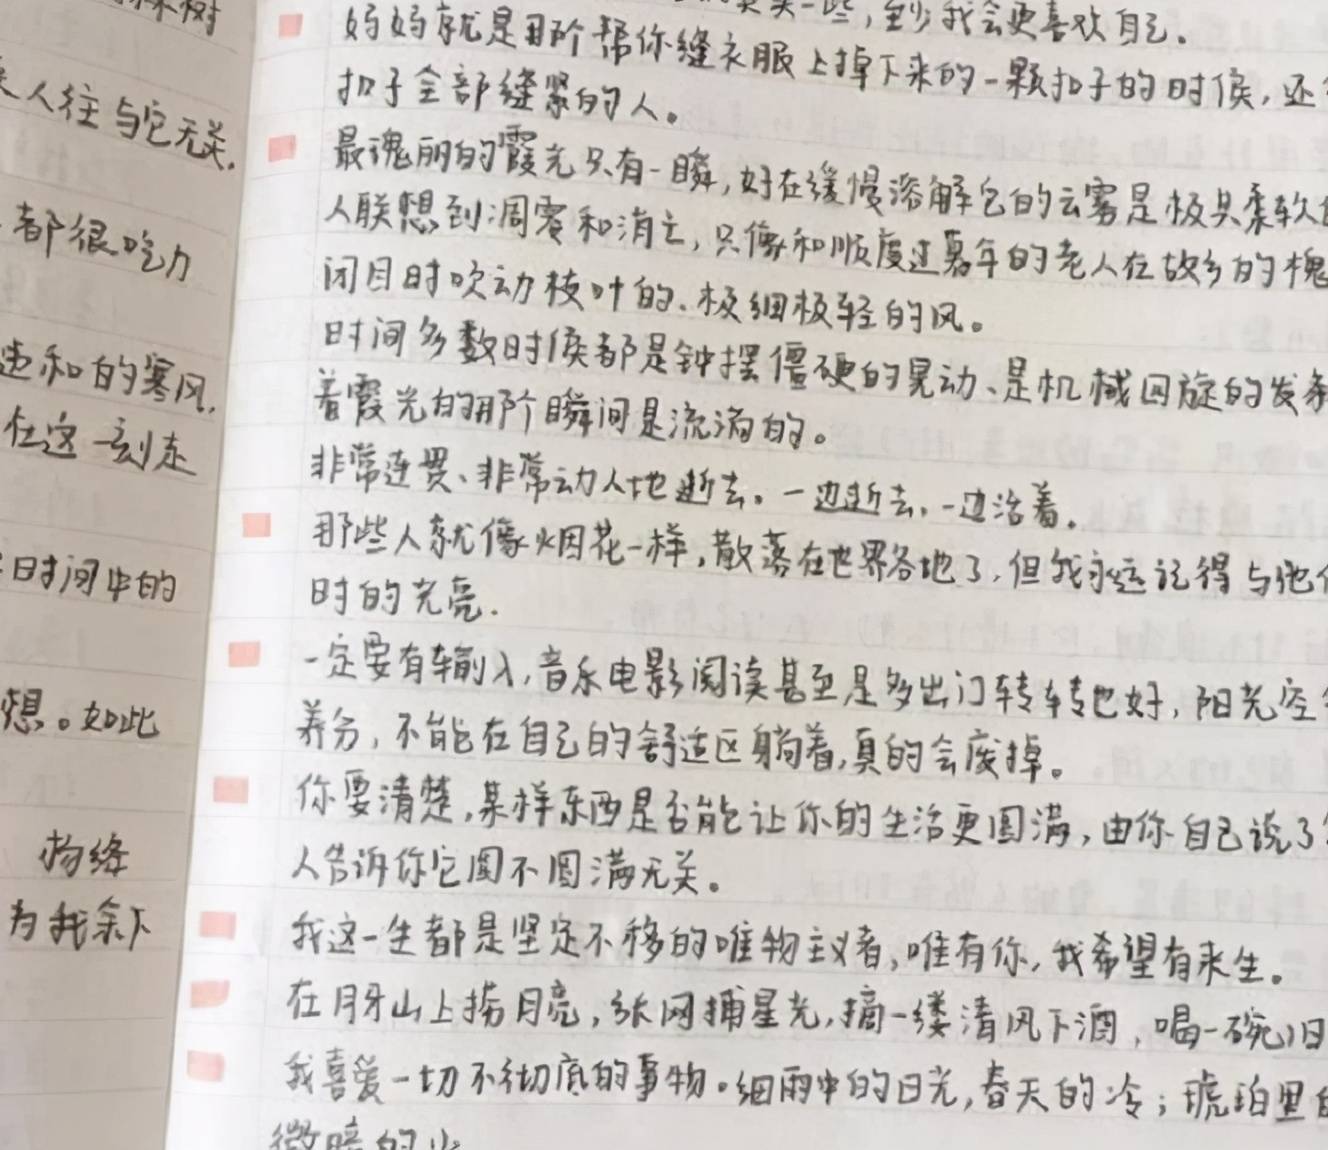 树
人往与它无关.
都很吃力
违和的寒风,
在这一刻走
日时间中的
想。如此
为我余下
一些,至少我会更喜欢自己.
妈妈就是那个帮你缝衣服上掉下来的一颗扣子的时候,还
扣子全部缝紧的人。
最瑰丽的霞光只有一瞬,好在缓慢溶解它的云雾是极其柔软
人联想到凋零和消亡,只像和顺度过暮年的老人在故乡的槐
闭目时吹动枝叶的、极细极轻的风。
时间多数时候都是钟摆僵硬的晃动、是机械回旋的发条
着霞光的那个瞬间是流淌的。
非常连贯、非常动人地逝去。一边逝去,一边活着.
那些人就像烟花一样,散落在世界各地了,但我永远记得与他
时的光亮.
一定要有输入,音乐电影阅读甚至是多出门转转也好,阳光空
养分,不能在自己的舒适区躺着,真的会废掉。
你要清楚,某样东西是否能让你的生活更圆满,由你自己说了
人告诉你它圆不圆满无关。
我这一生都是坚定不移的唯物主义者,唯有你,我希望有来生。
在月牙山上捞月亮,张网捕星光,摘一缕清风下酒,喝一碗旧
我喜爱一切不彻底的事物。细雨中的日光,春天的冷;琥珀里
微暗的火